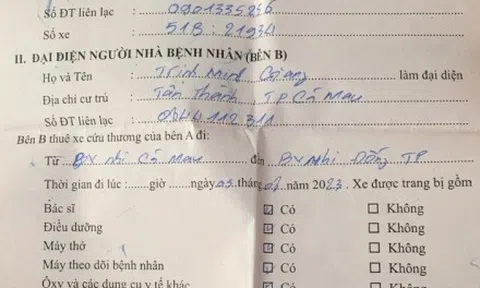 Số ĐT liên lạc : 0901335246
Số xe : 51B : 21934
II. ĐẠI DIỆN NGƯỜI NHÀ BỆNH NHÂN (BÊN B)
Họ và Tên : Trịnh Minh Giang làm đại diện
Địa chỉ cư trú : Tân Thành, TP Cà Mau
Số ĐT liên lạc : 0944112311
Bên B thuê xe cứu thương của bên A đi:
Từ BV nhi Cà Mau đến BV Nhi Đồng TP
Thời gian đi lúc : ......giờ ......ngày 05 tháng 02 năm 2023. Xe được trang bị gồm
Bác sĩ ☑ Có ☐ Không
Điều dưỡng ☑ Có ☐ Không
Máy thở ☑ Có ☐ Không
Máy theo dõi bệnh nhân ☑ Có ☐ Không
Ôxy và các dụng cụ y tế khác ☑ Có ☐ Không